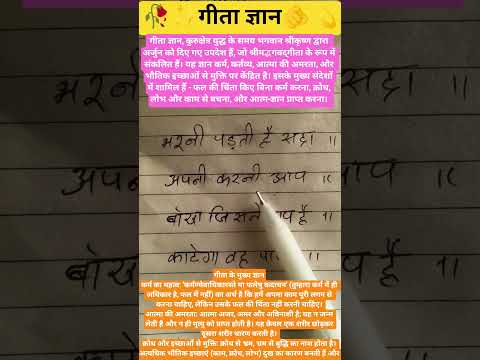 गीता ज्ञान
गीता ज्ञान, कुरुक्षेत्र युद्ध के समय भगवान श्रीकृष्ण द्वारा
अर्जुन को दिए गए उपदेश हैं, जो श्रीमद्भगवद्गीता के रूप में
संकलित हैं। यह ज्ञान कर्म, कर्तव्य, आत्मा की अमरता, और
भौतिक इच्छाओं से मुक्ति पर केंद्रित है। इसके मुख्य संदेशों
में शामिल हैं - फल की चिंता किए बिना कर्म करना, क्रोध,
लोभ और काम से बचना, और आत्म-ज्ञान प्राप्त करना।
भरनी पड़ती है सदा ॥
अपनी करनी आप ॥
बोया जिसने है ॥
काटेगा वह ॥
गीता के मुख्य ज्ञान
कर्म का महत्व: 'कर्मण्येवाधिकारस्ते मा फलेषु कदाचन' (तुम्हारा कर्म में ही
अधिकार है, फल में नहीं) का अर्थ है कि हमें अपना काम पूरी लगन से
करना चाहिए, लेकिन उसके फल की चिंता नहीं करनी चाहिए।
आत्मा की अमरता: आत्मा अजर, अमर और अविनाशी है; वह न जन्म
लेती है और न ही मृत्यु को प्राप्त होती है। यह केवल एक शरीर छोड़कर
दूसरा शरीर धारण करती है।
क्रोध और इच्छाओं से मुक्ति: क्रोध से भ्रम, भ्रम से बुद्धि का नाश होता है।
अत्यधिक भौतिक इच्छाएं (काम, क्रोध, लोभ) दुख का कारण बनती हैं और